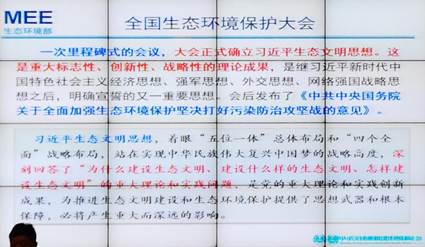 MEE
生态环境部
全国生态环境保护大会
一次里程碑式的会议，大会正式确立习近平生态文明思想。这
是重大标志性、创新性、战略性的理论成果，是继习近平新时代中
国特色社会主义经济思想、强军思想、外交思想、网络强国战略思
想之后，明确宣誓的又一重要思想。会后发布了《中共中央国务院
关于全面加强生态环境保护坚决打好污染防治攻坚战的意见》。
习近平生态文明思想，着眼“五位一体”总体布局和“四个全
面”战略布局，站在实现中华民族伟大复兴中国梦的战略高度，深
刻回答了“为什么建设生态文明、建设什么样的生态文明、怎样建
设生态文明”的重大理论和实践问题，是党的重大理论和实践创新
成果，为推进生态文明建设和生态环境保护提供了思想武器和根本
保障，必将产生重大而深远的影响。